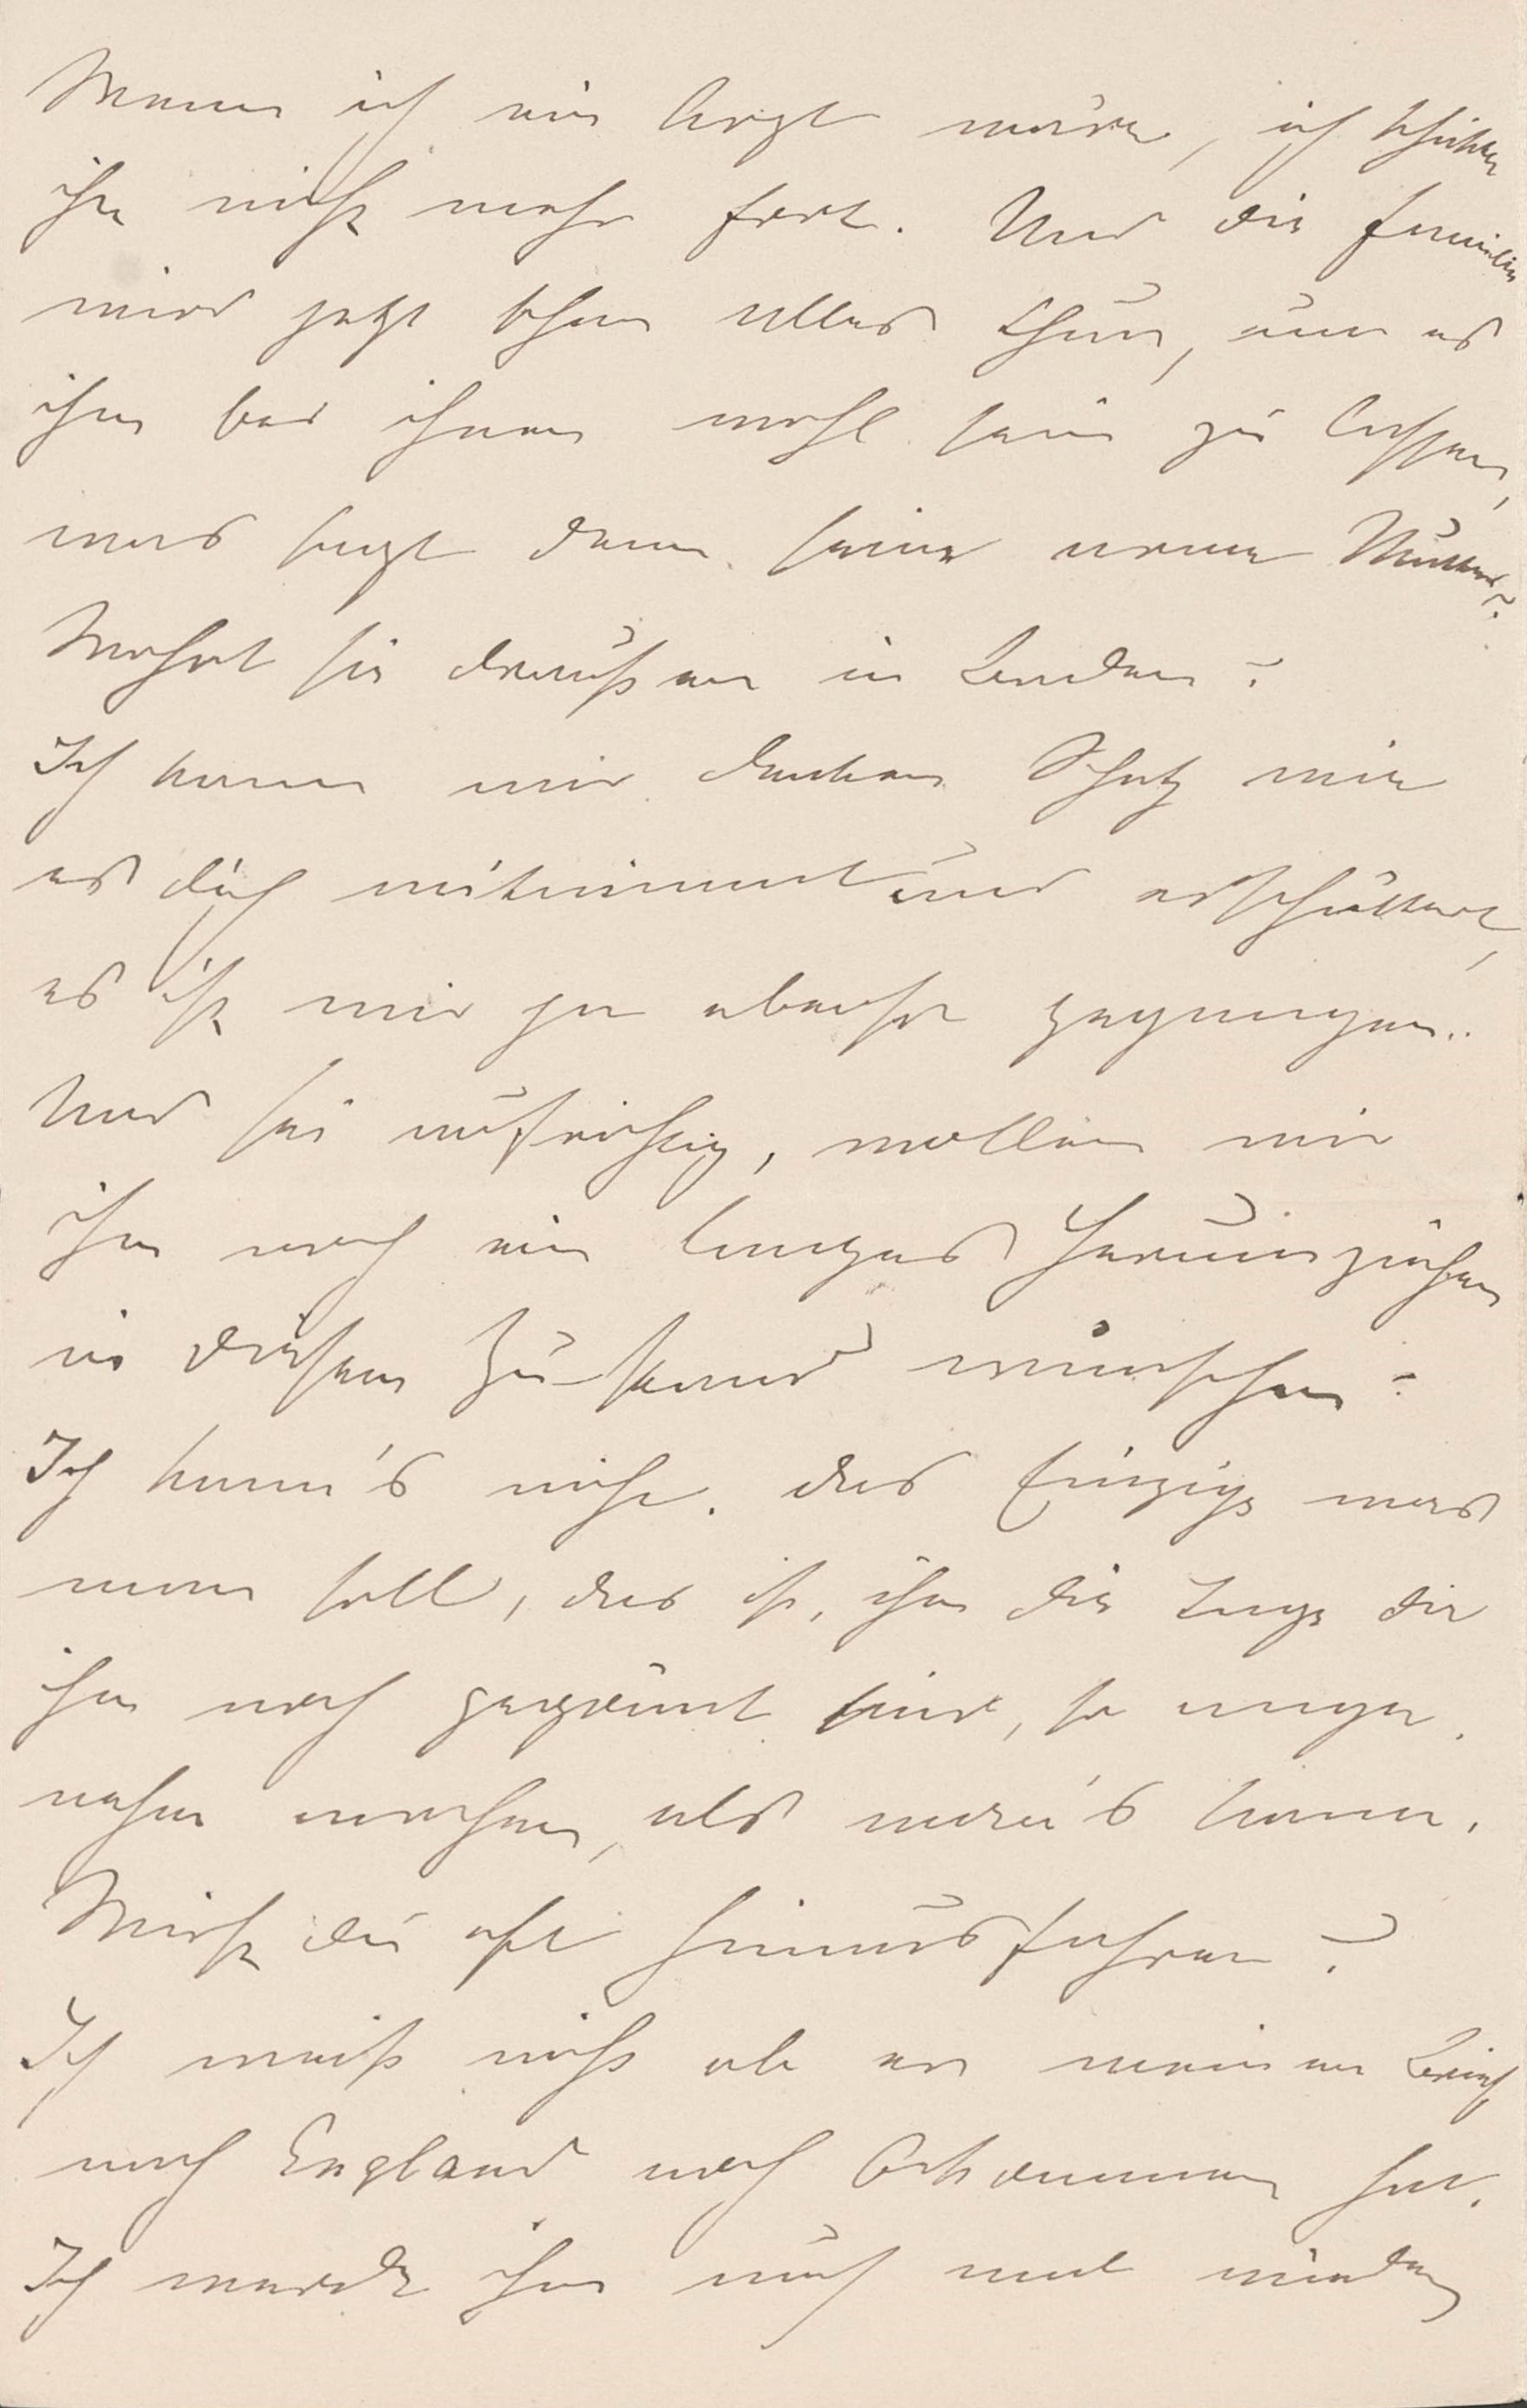 Wenn ich ein Arzt wäre, ich schickte
ihn nicht mehr fort. Und die Familie
wird jetzt schon alles thun, um es
ihm bei ihnen wohl sein zu lassen,
was sagt denn seine arme Mutter?
Wohnt sie draußen in London?
Ich kann mir denken Schatz wie
es dich mitnimmt und erschüttert,
es ist mir ja ebenso gegangen..
Und sei aufrichtig, wollen wir
ihm noch ein langes Herumziehen
in diesem Zustand wünschen?
Ich kann's nicht. Das Einzige was
man soll, das ist, ihm die Tage die
ihm noch gegönnt sind, so ange
nehm machen, als man's kann.
Wirst du oft hinausfahren?
Ich weiß nicht ob er meinen Brief
nach England noch bekommen hat.
Ich werde ihm auch mal wieder